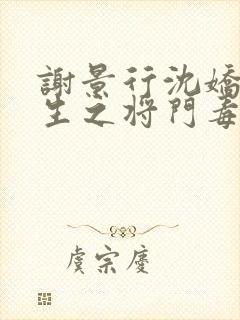 謝景行沈嬌
生之將門毒
虞宗慶